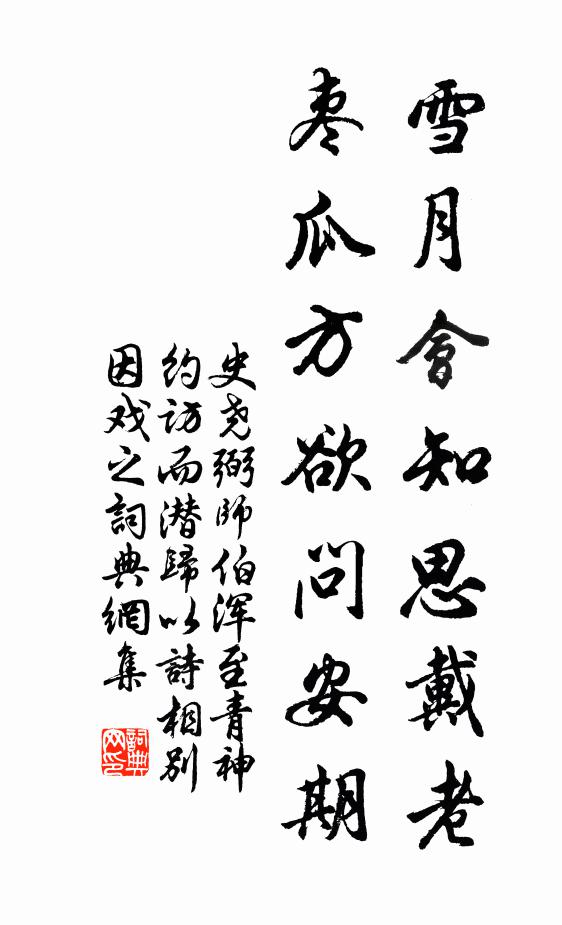 雪月會知思戴老
枣瓜方欲問安期
史尧弼師伯浑至青神
约訪而潜歸以詩相别
因戏之詞典網集
詞典
网印